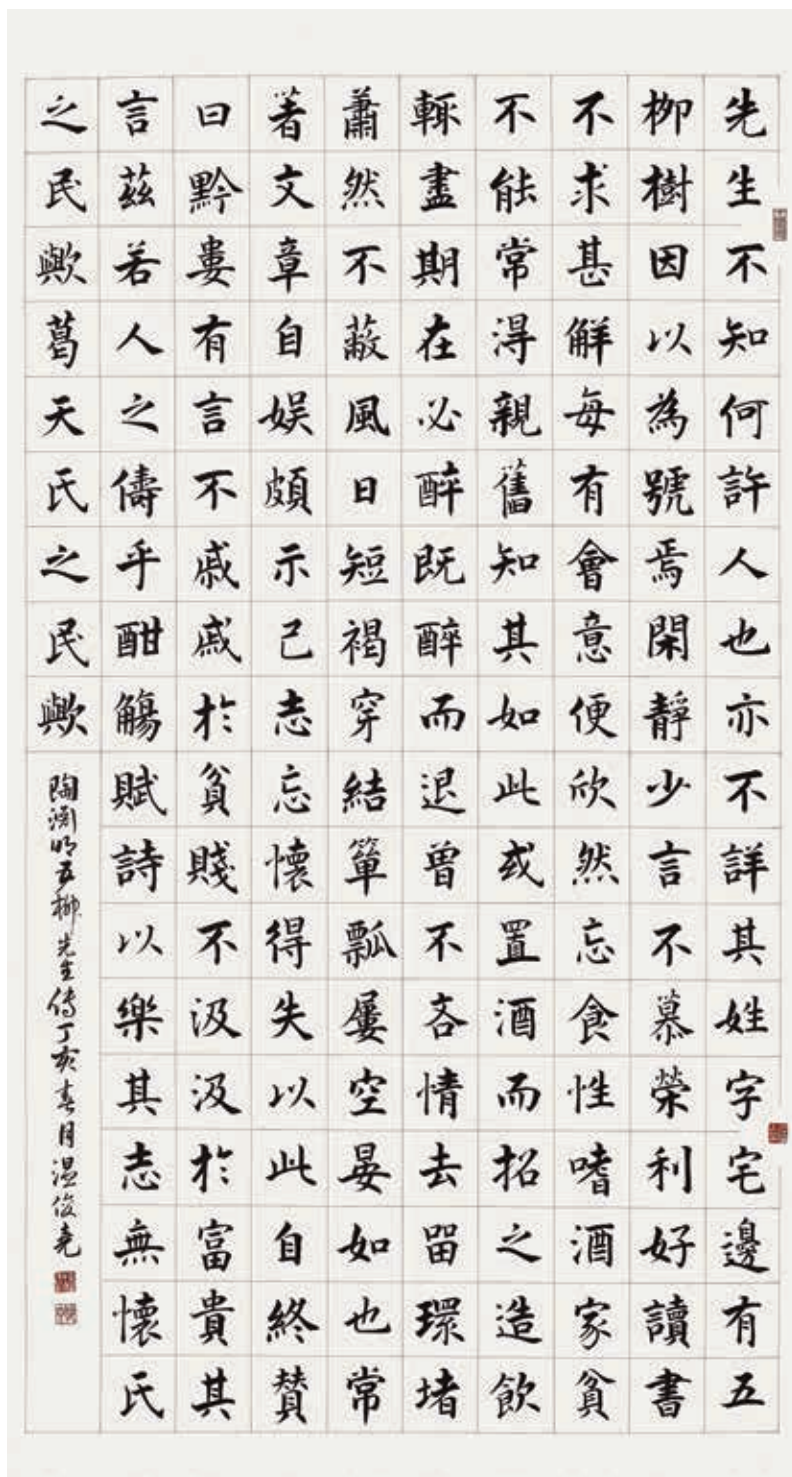 先生不知何許人也亦不詳其姓字宅邊有五
柳樹因以為號焉閑靜少言不慕榮利好讀書
不求甚解每有會意便欣然忘食性嗜酒家貧
不能常得親舊知其如此或置酒而招之造飲
輒盡期在必醉既醉而退曾不吝情去留環堵
蕭然不蔽風日短褐穿結簞瓢屢空晏如也常
著文章自娛頗示己志忘懷得失以此自終贊
曰黔婁有言不戚戚於貧賤不汲汲於富貴其
言茲若人之儔乎酣觴賦詩以樂其志無懷氏
之民歟葛天氏之民歟
陶淵明五柳先生傳丁亥春月溫俊堯